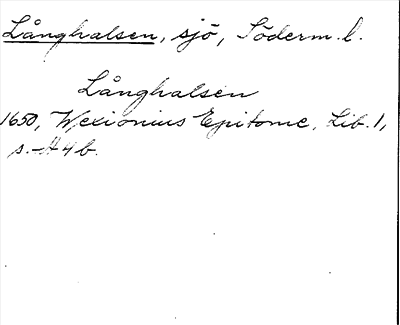 Långhalsen, sjö, Söderm. l.
Långhalsen
1650, Wexionius Epitome, Lib. 1,
s. A 4 b.